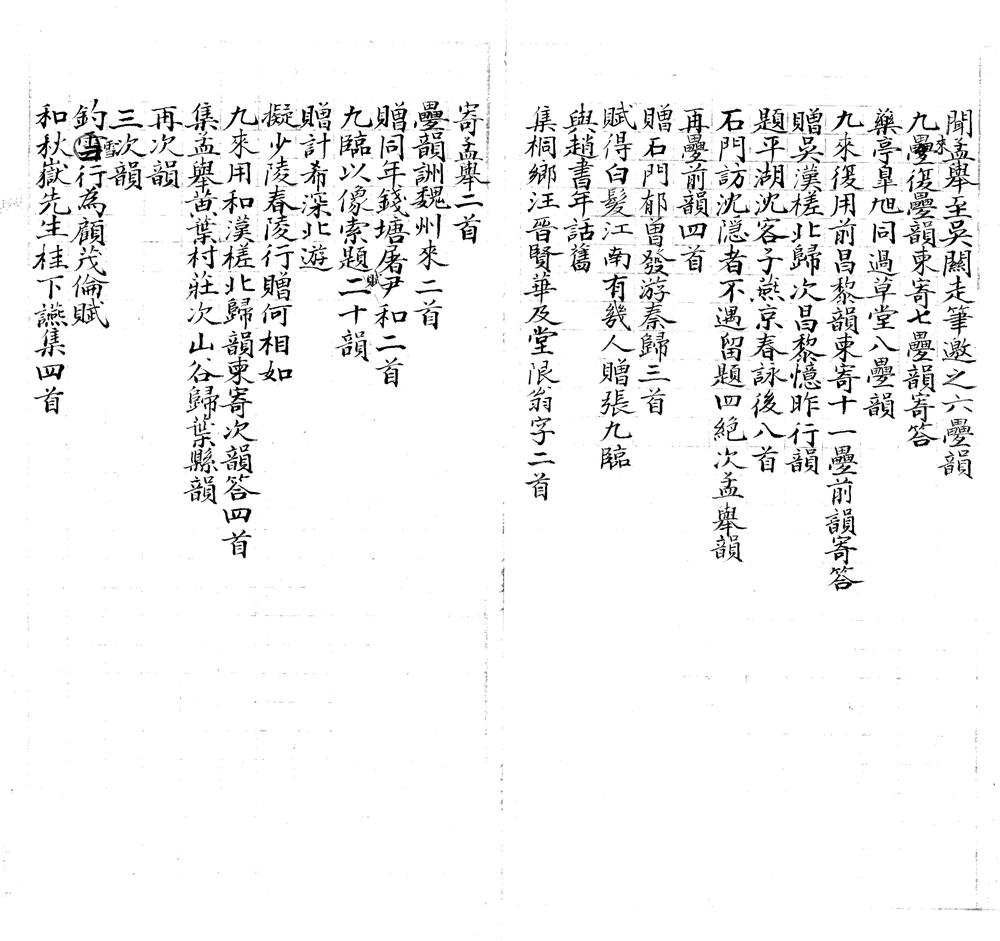 聞孟舉至吳闗走筆邀之六疊韻
九來復疊韻柬寄七疊韻寄答
藥亭皐旭同過草堂八疊韻
九來復用前昌黎韻柬寄十一疊前韻寄答
贈吳漢槎北歸次昌黎憶昨行韻
題平湖沈客子燕京春詠後八首
石門訪沈隱者不遇留題四絕次孟舉韻
再疊前韻四首
贈石門郁曾發游秦歸三首
賦得白髮江南有幾人贈張九臨
與趙書年話舊
集桐鄉汪晉賢華及堂限翁字二首
寄孟舉二首
疊韻詶魏州來二首
贈同年錢塘屠尹和二首
九臨以像索題賦二十韻
贈計希深北遊
擬少陵舂陵行贈何相如
九來用和漢槎北歸韻柬寄次韻答四首
集孟舉黃葉村莊次山谷歸葉縣韻
再次韻
三次韻
釣雪行為顧茂倫賦
和秋嶽先生桂下讌集四首